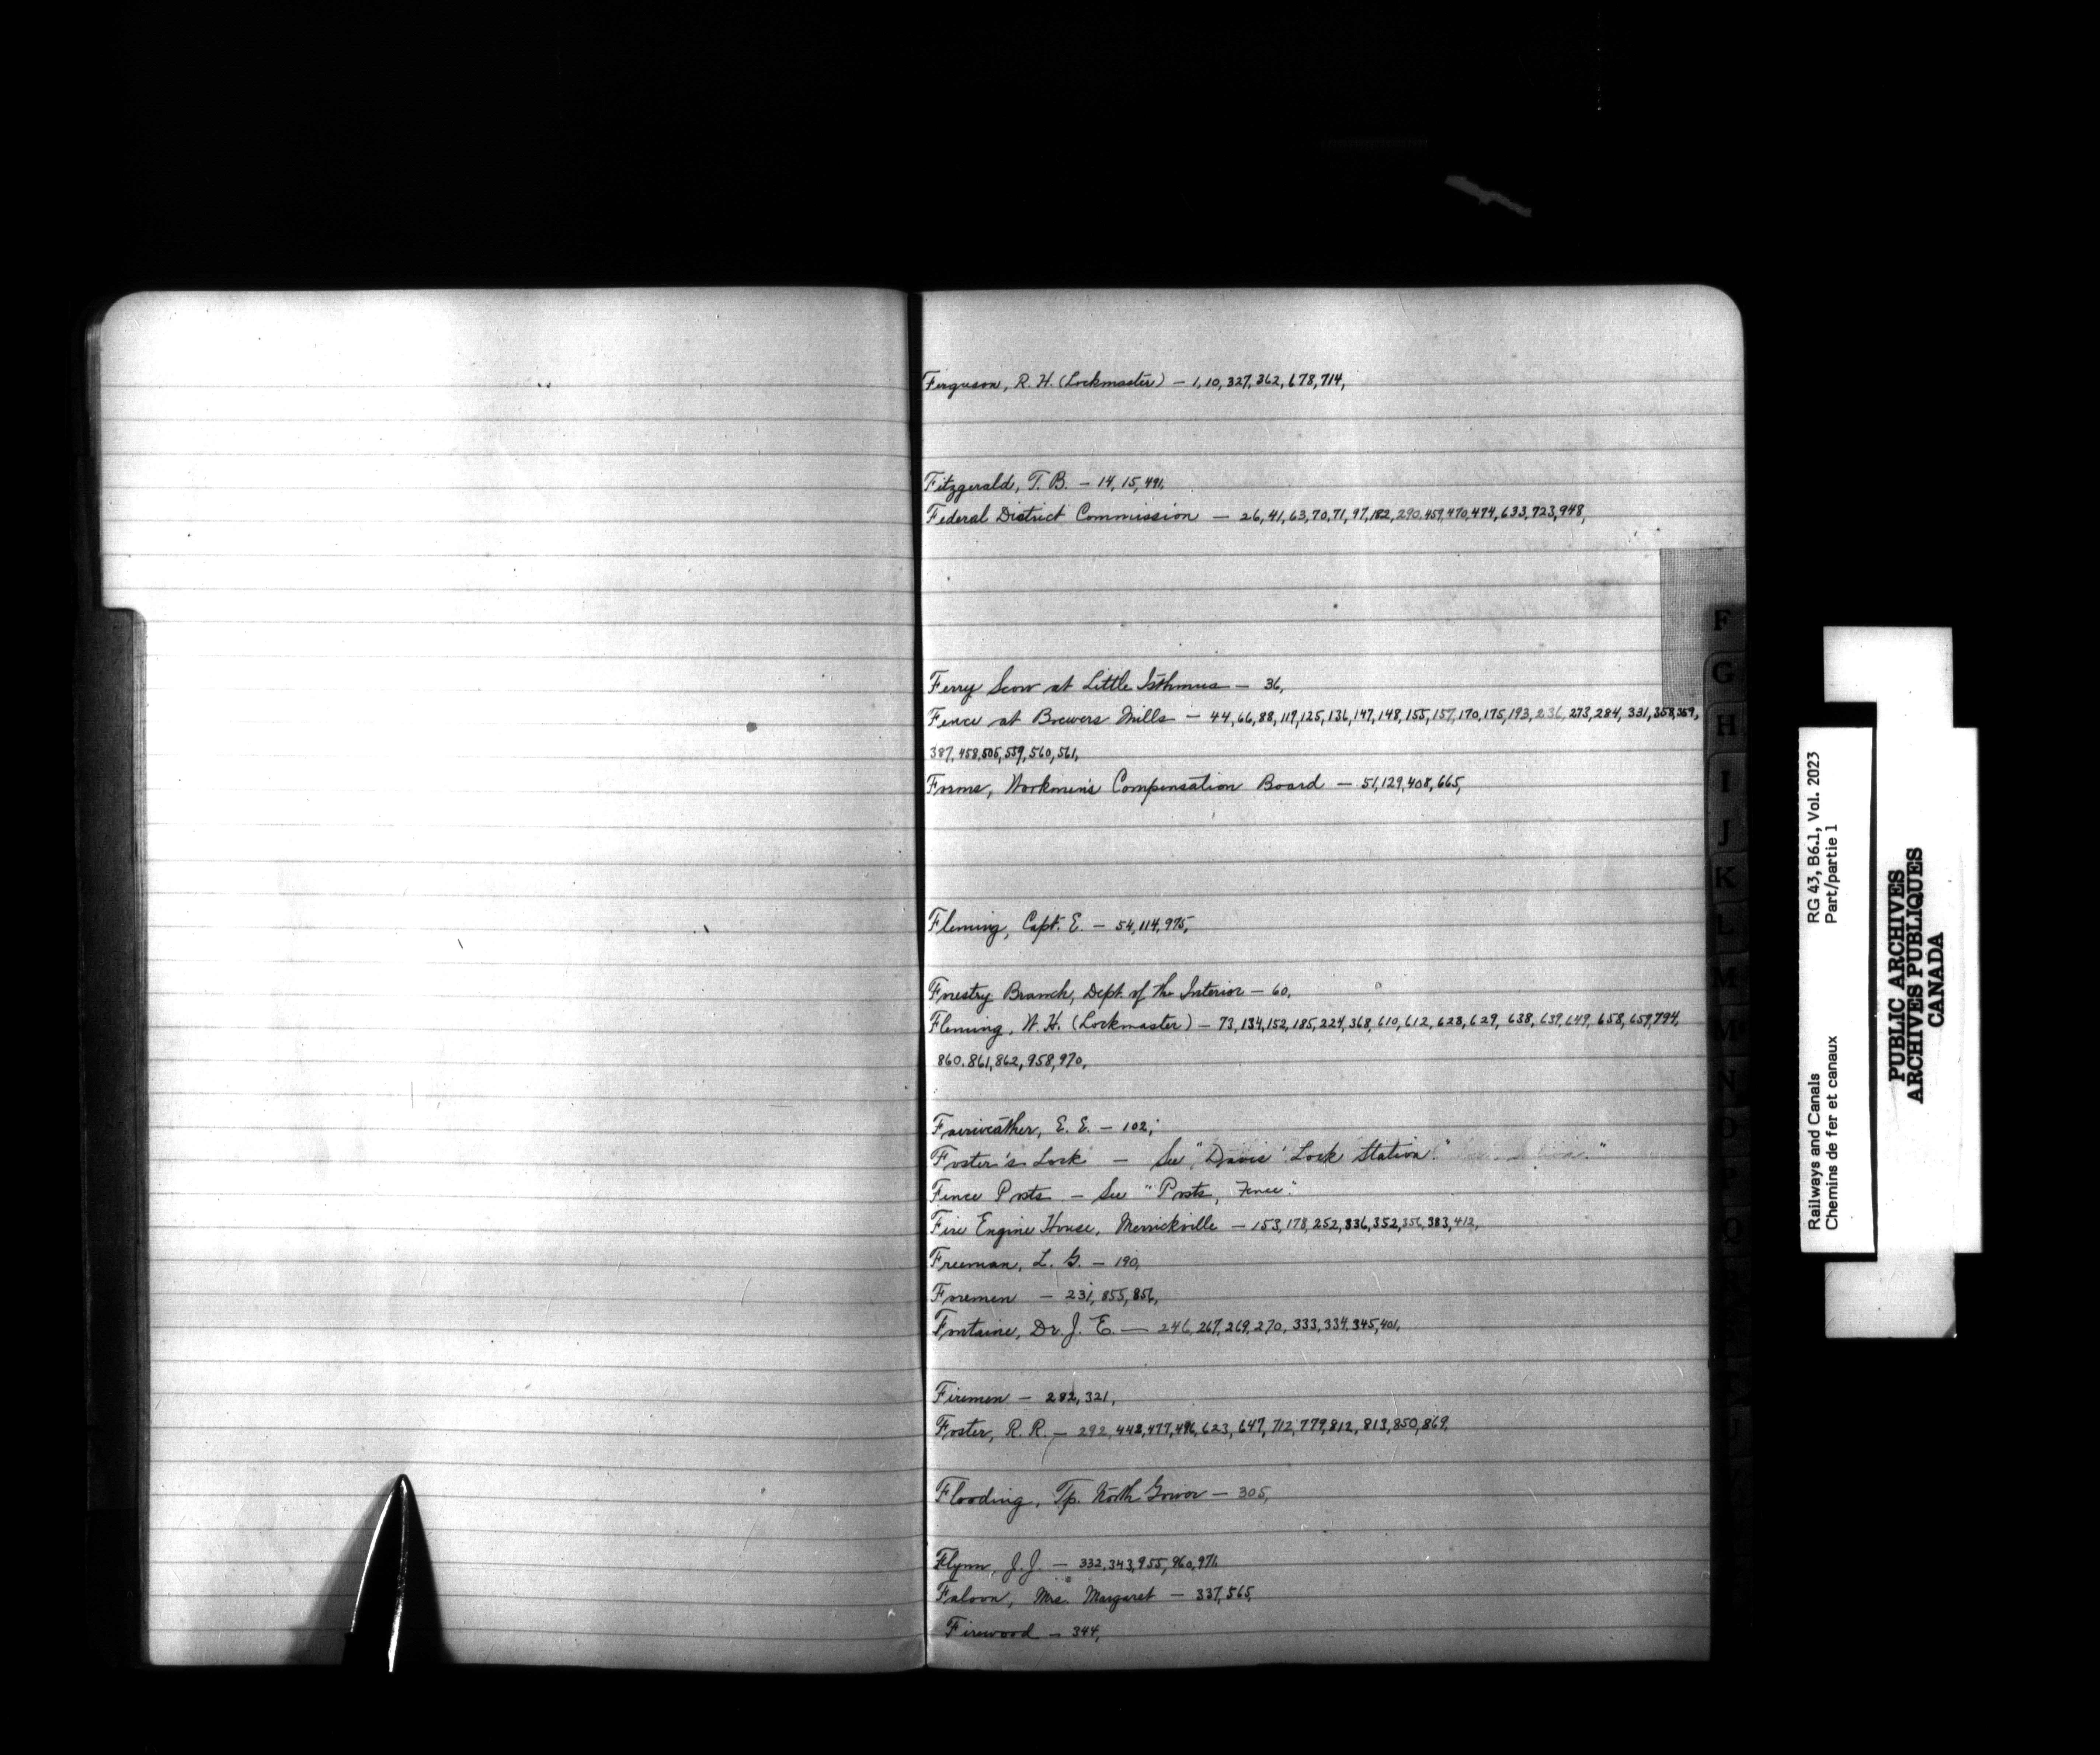 Ferguson, R. H. (Lockmaster) — 1, 10, 327, 362, 678, 714,
Fitzgerald, T. B. — 14, 15, 491,
Federal District Commission — 26, 41, 63, 70, 71, 97, 182, 290, 459, 470, 474, 633, 723, 948,
Ferry Scow at Little Isthmus — 36,
Fence at Brewers Mills — 44, 66, 88, 119, 125, 136, 147, 148, 155, 157, 170, 175, 193, 236, 273, 284, 331, 358, 359,
387, 458, 505, 559, 560, 561,
Forms, Workmen's Compensation Board — 51, 129, 408, 665,
Fleming, Capt. E. — 54, 114, 975,
Forestry Branch, Dept. of the Interior — 60,
Fleming, W. H. (Lockmaster) — 73, 134, 152, 185, 224, 368, 610, 612, 628, 629, 638, 639, 649, 658, 659, 794,
860, 861, 862, 958, 970,
Fairweather, E. E. — 102,
Foster's Lock — See "Davis' Lock Station"
Fence Posts — See "Posts, Fence".
Fire Engine House, Merrickville — 153, 178, 252, 336, 352, 356, 383, 412,
Freeman, L. G. — 190,
Foremen — 231, 855, 856,
Fontaine, Dr. J. E. — 246, 267, 269, 270, 333, 334, 345, 401,
Firemen — 282, 321,
Foster, R. R. — 292, 448, 477, 496, 623, 647, 712, 779, 812, 813, 850, 869,
Flooding, Tp. North Gower — 305,
Flynn, J. J. — 332, 343, 955, 960, 971,
Faloon, Mrs. Margaret — 337, 565,
Firewood — 344,
F
G
H
I
J
K
L
M
N
O
P
Q
Railways and Canals
Chemins de fer et canaux
RG 43, B6.1, Vol. 2023
Part/partie 1
PUBLIC ARCHIVES
ARCHIVES PUBLIQUES
CANADA